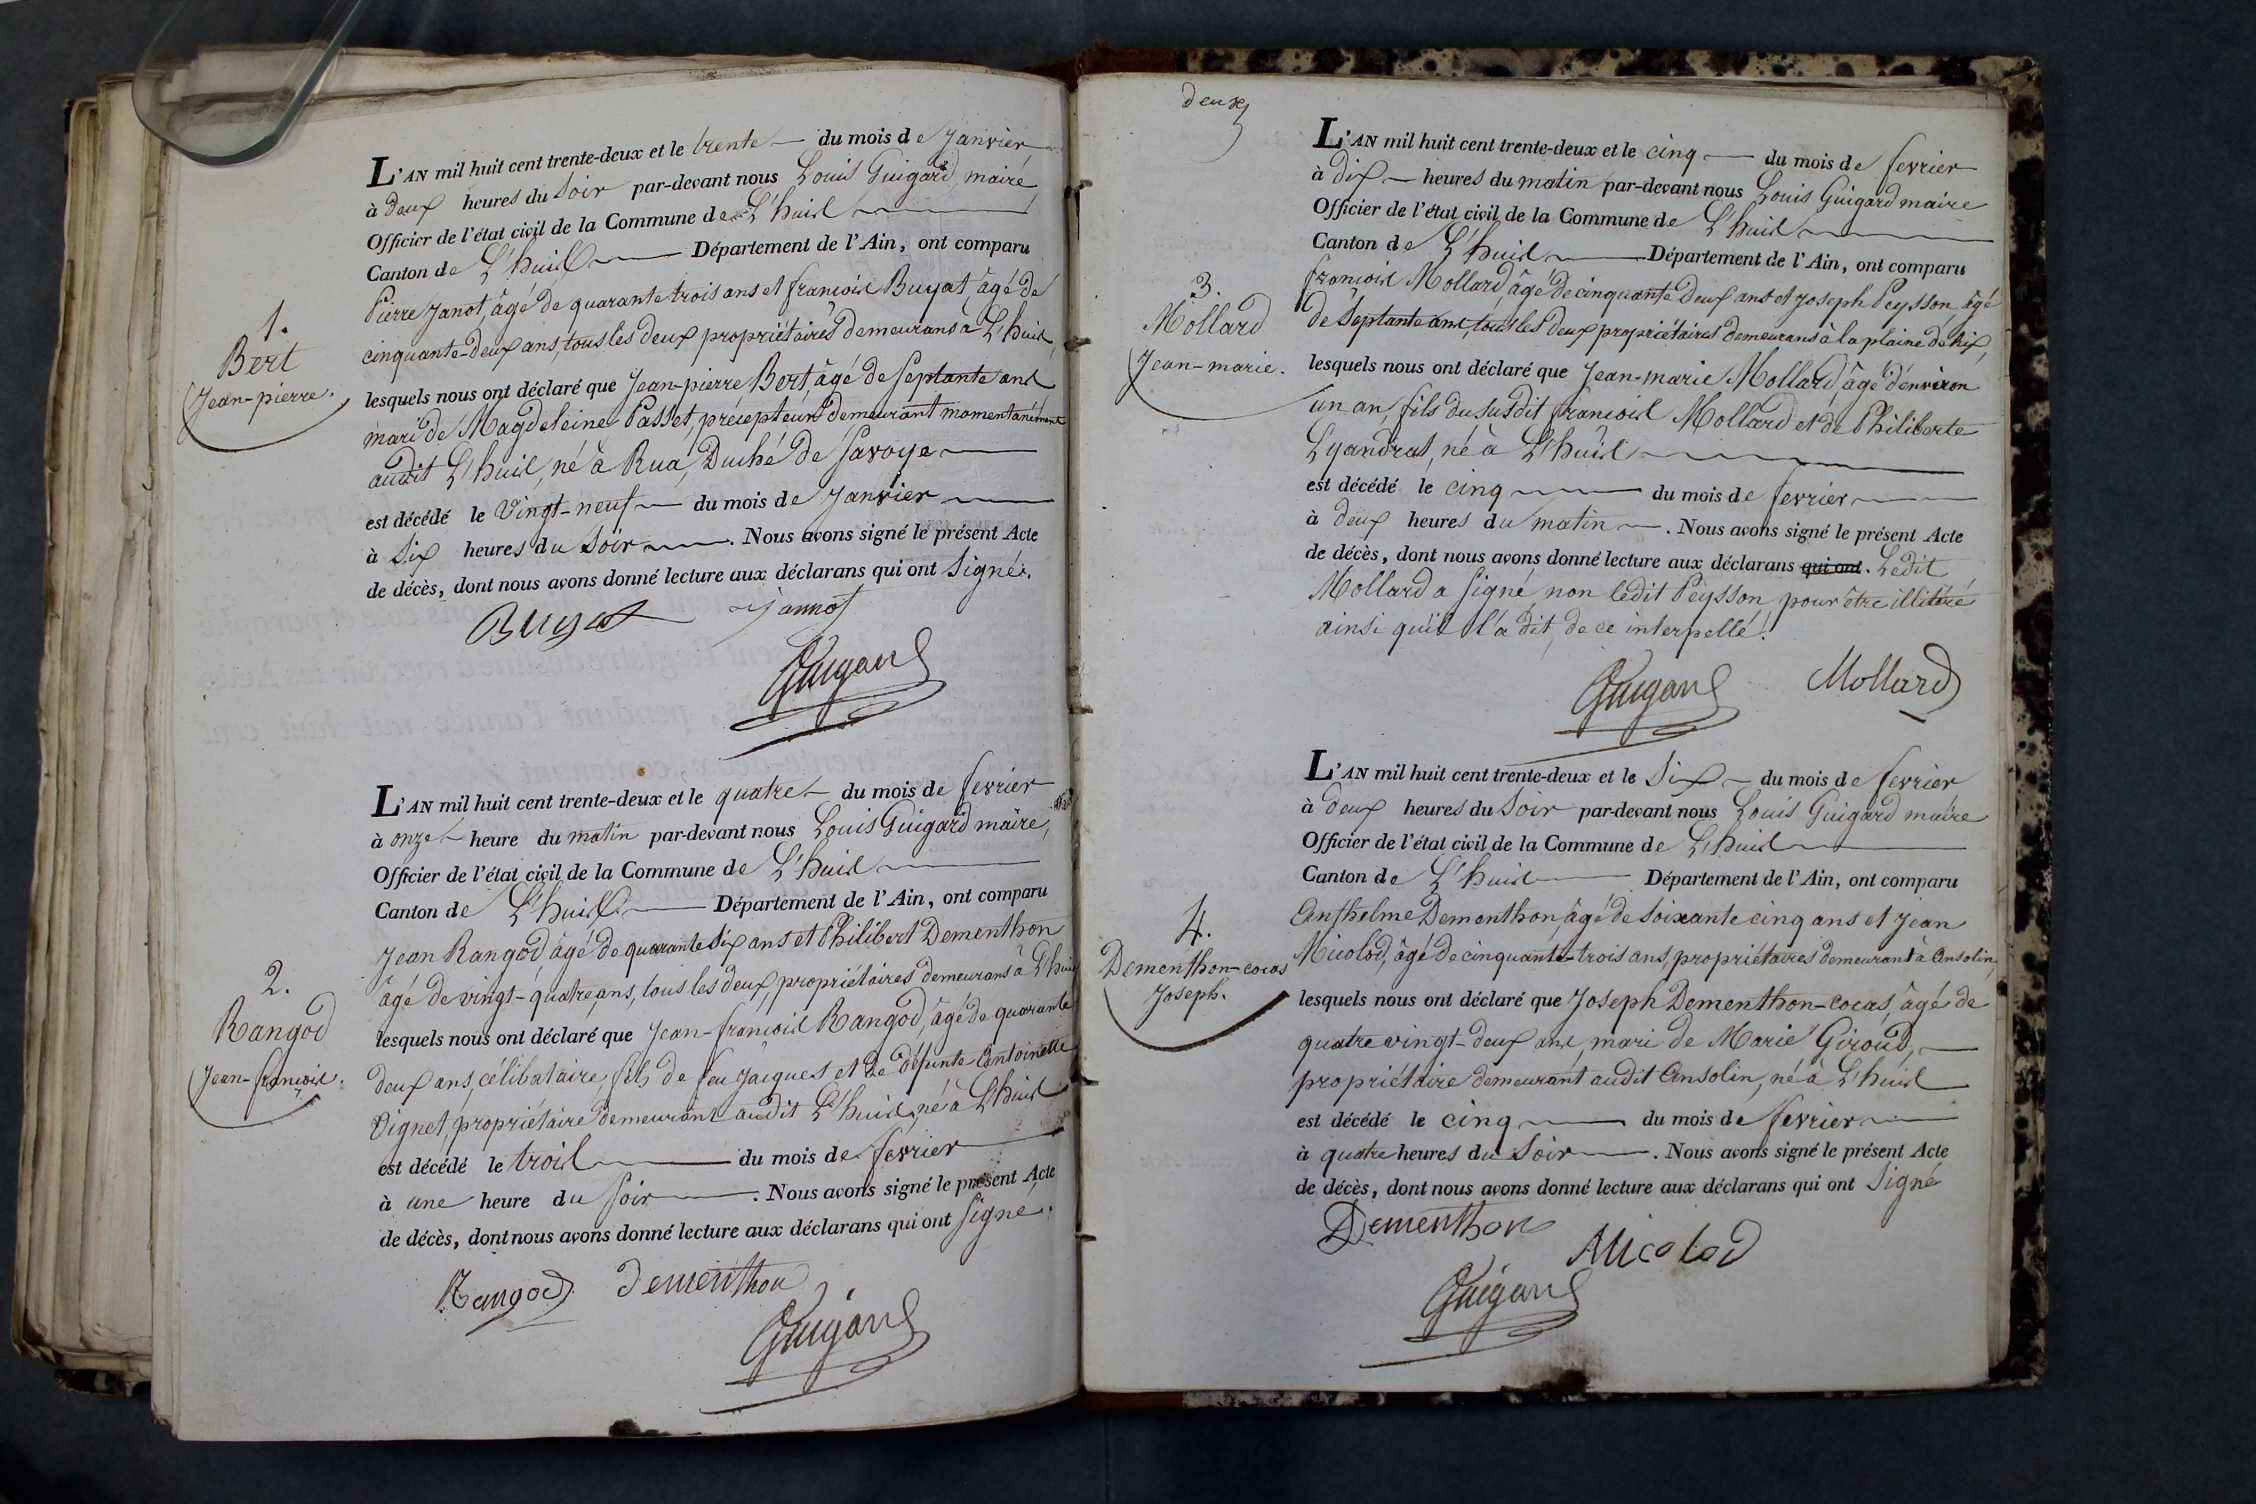 L'AN mil huit cent trente-deux et le trente du mois de Janvier
à deux heures du soir par-devant nous Louis Guigard, maire,
Officier de l'état civil de la Commune de L'huis
Canton de L'huis Département de l'Ain, ont comparu
Pierre Janot, âgé de quarante trois ans et françois Buyat, âgé de
cinquante-deux ans, tous les deux propriétaires demeurans à L'huis,
1.
Bert
Jean-pierre.
lesquels nous ont déclaré que Jean-pierre Bert, âgé de septante ans
mari de Magdeleine Passet, précepteur demeurant momentanément
audit L'huis, né à Rua, Duché de Savoye
est décédé le vingt-neuf du mois de Janvier
à six heures du soir. Nous avons signé le présent Acte
de décès, dont nous avons donné lecture aux déclarans qui ont signé.
Buyat Jannot
Guigard
L'AN mil huit cent trente-deux et le quatre du mois de fevrier
à onze heure du matin par-devant nous Louis Guigard maire,
Officier de l'état civil de la Commune de L'huis
Canton de L'huis Département de l'Ain, ont comparu
Jean Rangod âgé de quarante six ans et Philibert Dementhon
âgé de vingt-quatre ans, tous les deux propriétaires demeurans à L'huis
2.
Rangod
Jean-françois.
lesquels nous ont déclaré que Jean-françois Rangod, âgé de quarante
deux ans, célibataire, fils de feu Jacques et de défunte Antoinette
Vignet, propriétaire demeurant audit L'huis, né à L'huis
est décédé le trois du mois de fevrier
à une heure du soir. Nous avons signé le présent Acte
de décès, dont nous avons donné lecture aux déclarans qui ont signé.
Rangod Dementhon
Guigard
deux
L'AN mil huit cent trente-deux et le cinq du mois de fevrier
à dix heures du matin par-devant nous Louis Guigard maire
Officier de l'état civil de la Commune de L'huis
Canton de L'huis Département de l'Ain, ont comparu
françois Mollard, âgé de cinquante deux ans et Joseph Peysson âgé
de septante ans, tous les deux propriétaires demeurans à la plaine de hix,
3.
Mollard
Jean-marie.
lesquels nous ont déclaré que Jean-marie Mollard, âgé d'environ
un an, fils du susdit françois Mollard et de Philiberte
Lyandrat, né à L'huis
est décédé le cinq du mois de fevrier
à deux heures du matin. Nous avons signé le présent Acte
de décès, dont nous avons donné lecture aux déclarans qui ont. Ledit
Mollard a signé non ledit Peysson pour être illitéré
ainsi qu'il l'a dit, de ce interpellé.
Guigard Mollard
L'AN mil huit cent trente-deux et le six du mois de fevrier
à deux heures du soir par-devant nous Louis Guigard maire
Officier de l'état civil de la Commune de L'huis
Canton de L'huis Département de l'Ain, ont comparu
Anthelme Dementhon, âgé de soixante cinq ans et Jean
Micolod, âgé de cinquante-trois ans, propriétaires demeurant à Ansolin,
4.
Dementhon-cocas
Joseph.
lesquels nous ont déclaré que Joseph Dementhon-cocas, âgé de
quatre vingt-deux ans, mari de Marie Giroud,
propriétaire demeurant audit Ansolin, né à L'huis
est décédé le cinq du mois de fevrier
à quatre heures du soir. Nous avons signé le présent Acte
de décès, dont nous avons donné lecture aux déclarans qui ont signé
Dementhon Micolod
Guigard